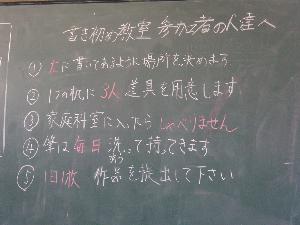 書き初め教室 参加者の人達へ
① 左に書いてあるように場所を決めます
② 1つの机に3人 道具を用意します
③ 家庭科室に入ったらしゃべりません
④ 筆は毎日洗って持ってきます
あら
⑤ 1日1枚 作品を提出して下さい